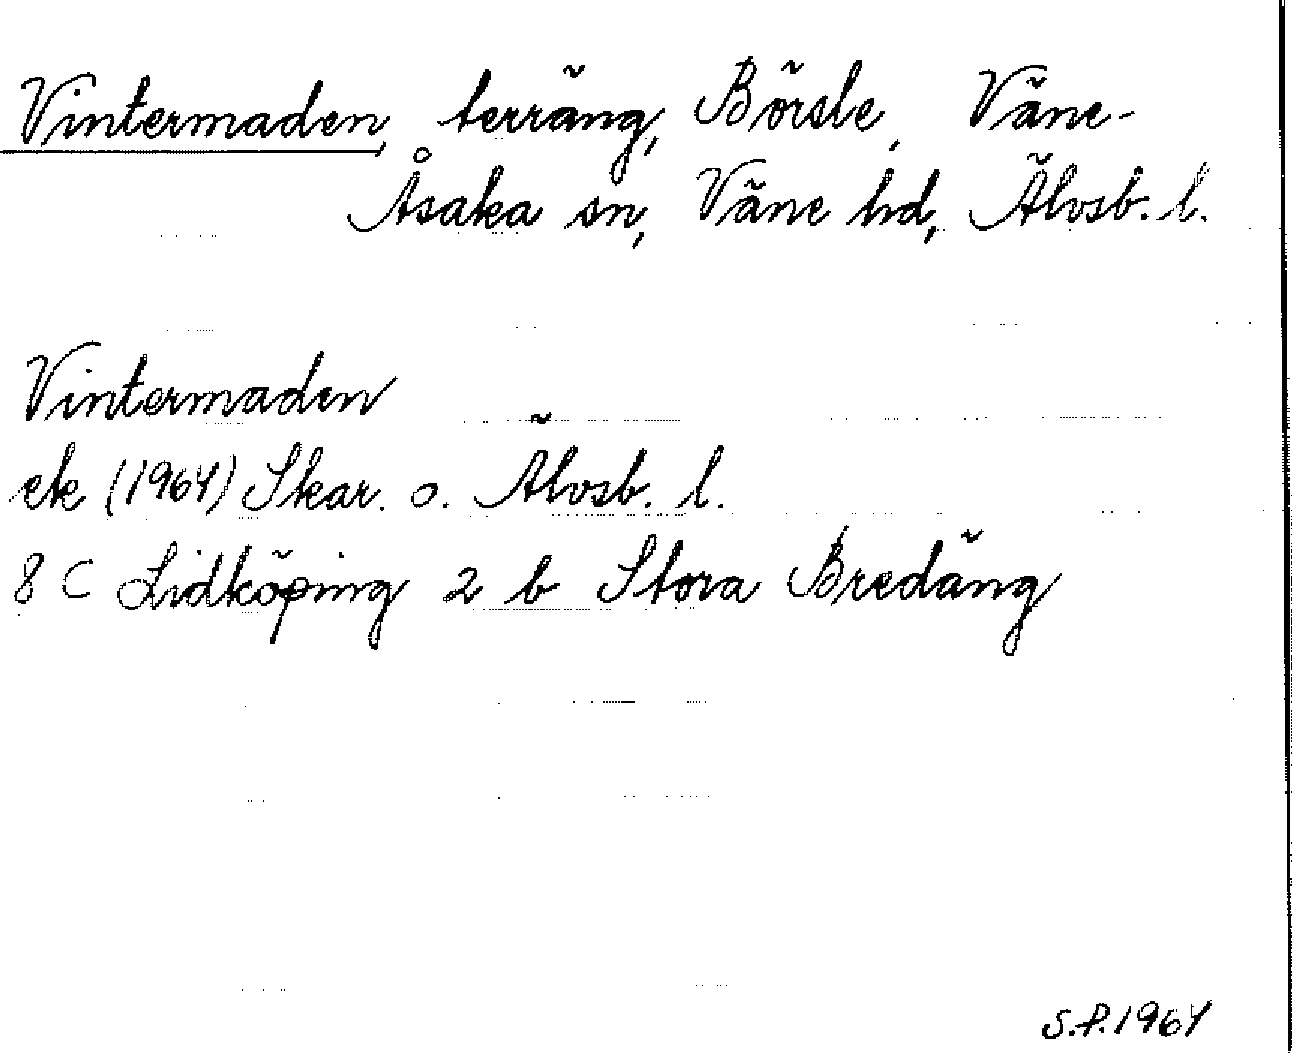 Vintermaden, terräng, Börsle, Väne-
Åsaka sn, Väne hd, Älvsb. l.
Vintermaden
ek (1964) Skar. o. Älvsb. l.
8 C Lidköping 2 b Stora Bredäng
S.P. 1964